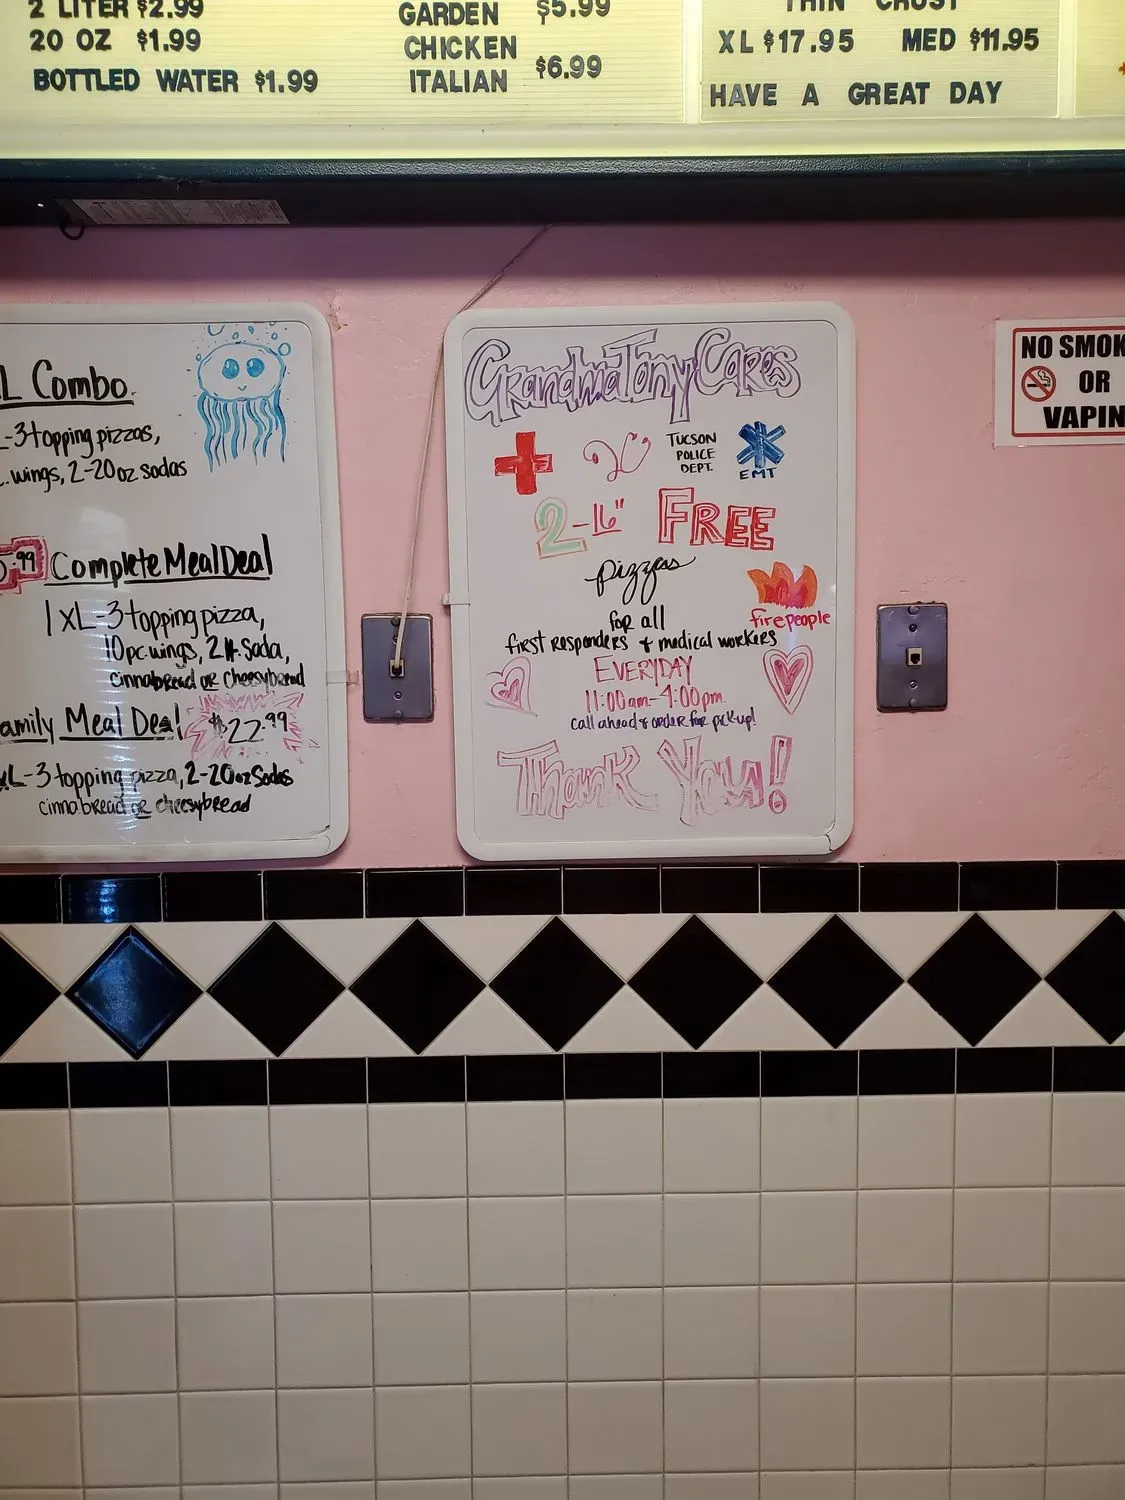 2 LITER $2.99
20 OZ $1.99
BOTTLED WATER $1.99
GARDEN $5.99
CHICKEN
ITALIAN $6.99
THIN CRUST
XL $17.95 MED $11.95
HAVE A GREAT DAY
L Combo
-3 topping pizzas,
wings, 2-20oz sodas
.99 Complete Meal Deal
1 XL-3 topping pizza,
10pc wings, 2 lt soda,
cinnabread or cheesybread
amily Meal Deal $22.99
XL-3 topping pizza, 2-20oz Sodas
cinnabread or cheesybread
Grandma Tony Cares
TUCSON
POLICE
DEPT.
EMT
2-16" FREE
pizzas
for all
fire people
first responders & medical workers
EVERYDAY
11:00am-4:00pm.
call ahead & order for pick-up!
Thank You!
NO SMOK
OR
VAPIN